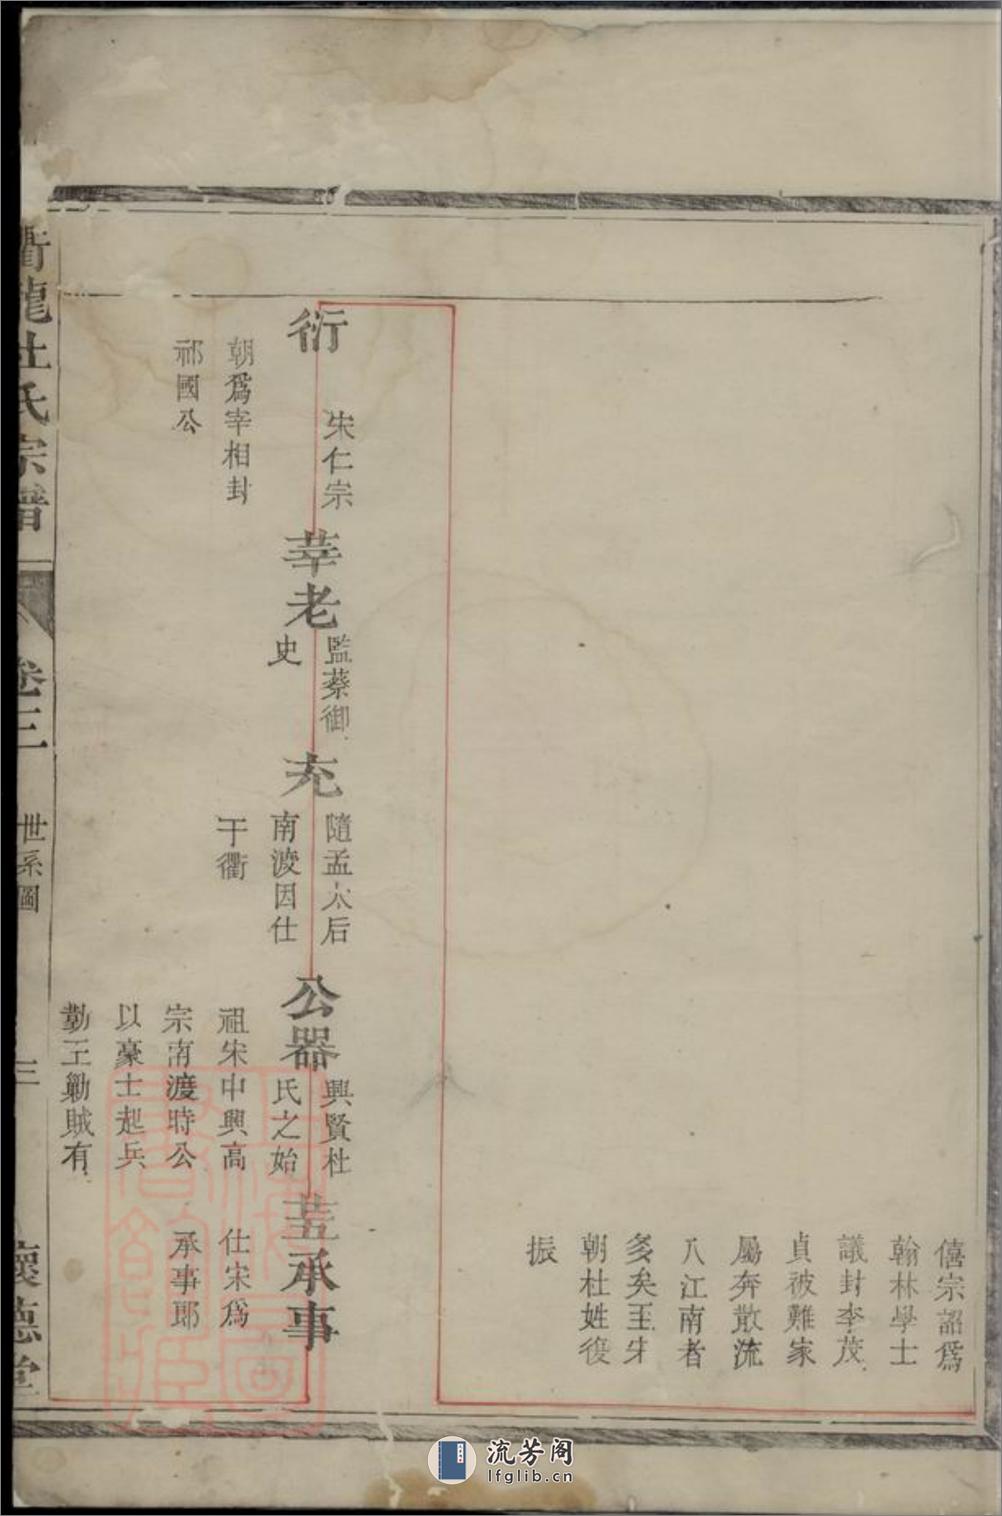 僖宗詔爲
翰林學士
議封李茂
貞被難家
屬奔散流
入江南者
多矣至宋
朝杜姓復
振
衍
宋仁宗
朝爲宰相封
祁國公
莘老
監蔡御
史
充
隨孟太后
南渡因仕
于衢
公器
興賢杜
氏之始
祖宋中興高
宗南渡時公
以豪士起兵
勤王勦賊有
承事
仕宋爲
承事郎
衢龍杜氏宗譜
卷三
世系圖
三
懷德堂
流芳阁
lfglib.cn